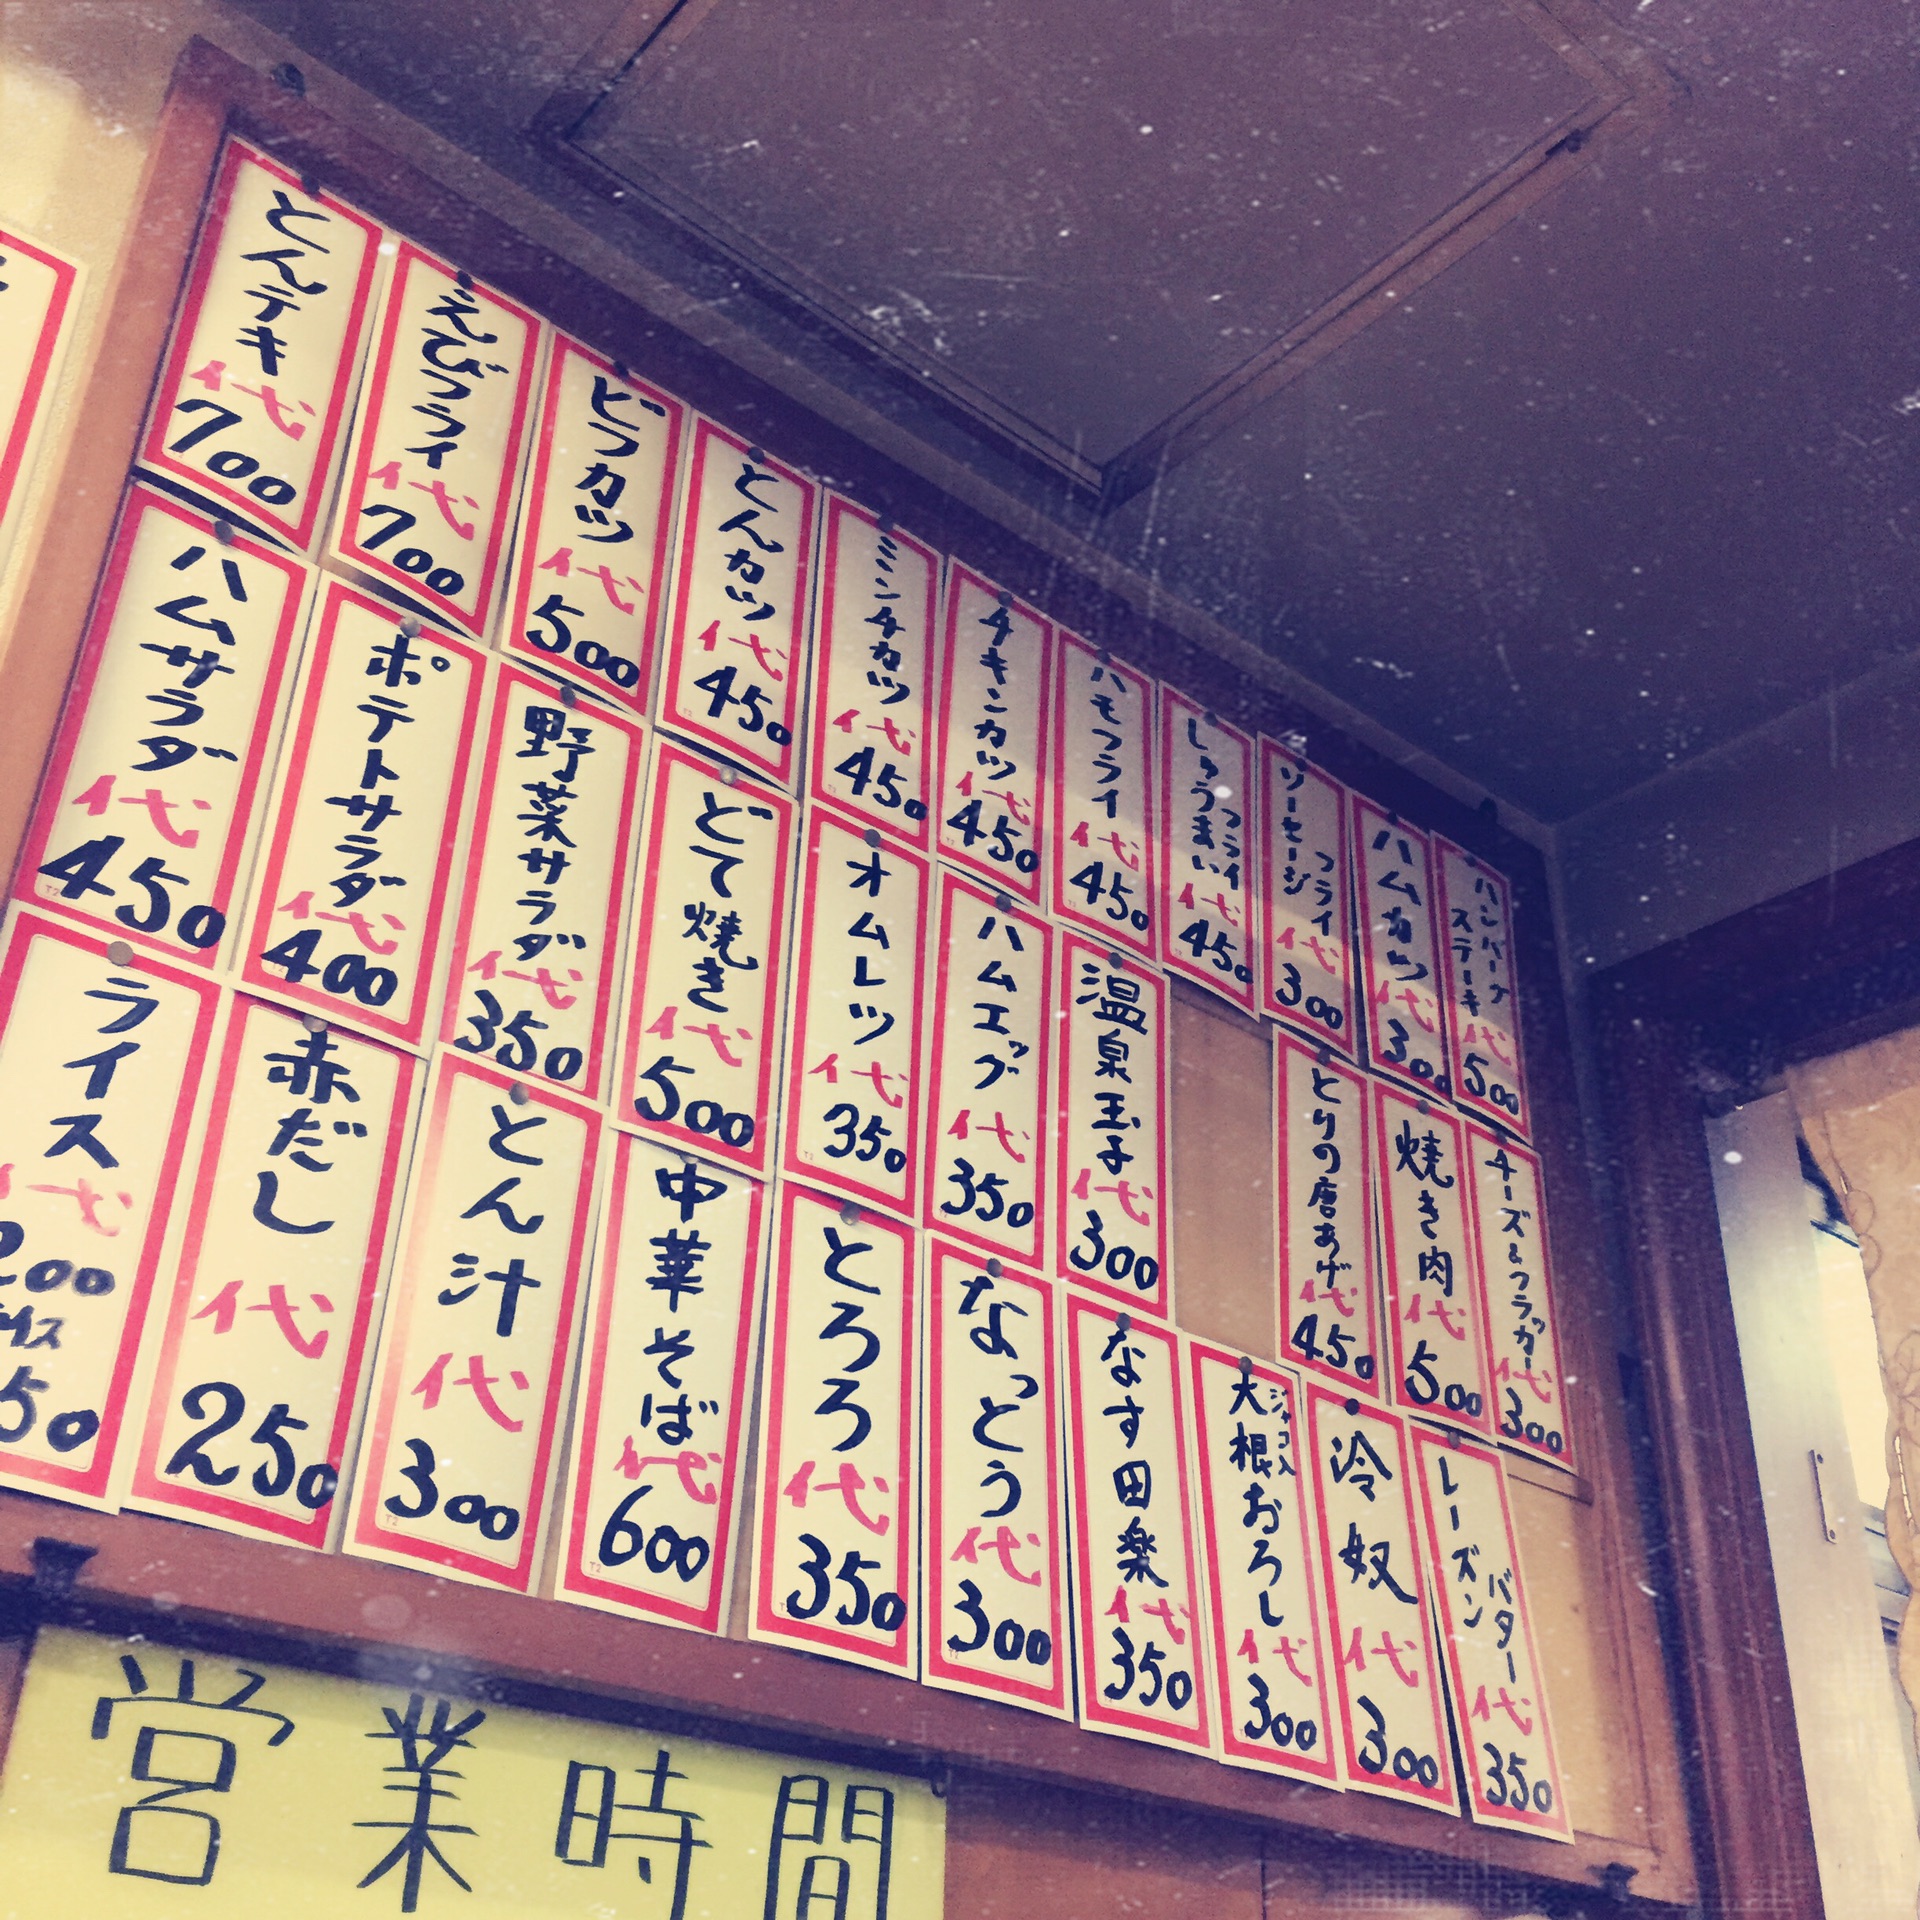 とんテキ代700
えびフライ代700
ビフカツ代500
とんカツ代450
ミンチカツ代450
チキンカツ代450
ハモフライ代450
しゅうまいフライ代450
ソーセージフライ代300
ハムカツ代300
ハンバーグステーキ代500
ハムサラダ代450
ポテトサラダ代400
野菜サラダ代350
どて焼き代500
オムレツ代350
ハムエッグ代350
温泉玉子代300
とりの唐あげ代450
焼き肉代500
チーズ&クラッカー代300
ライス代200
50
赤だし代250
とん汁代300
中華そば代600
とろろ代350
なっとう代300
なす田楽代350
ジャコ入大根おろし代300
冷奴代300
レーズンバター代350
営業時間